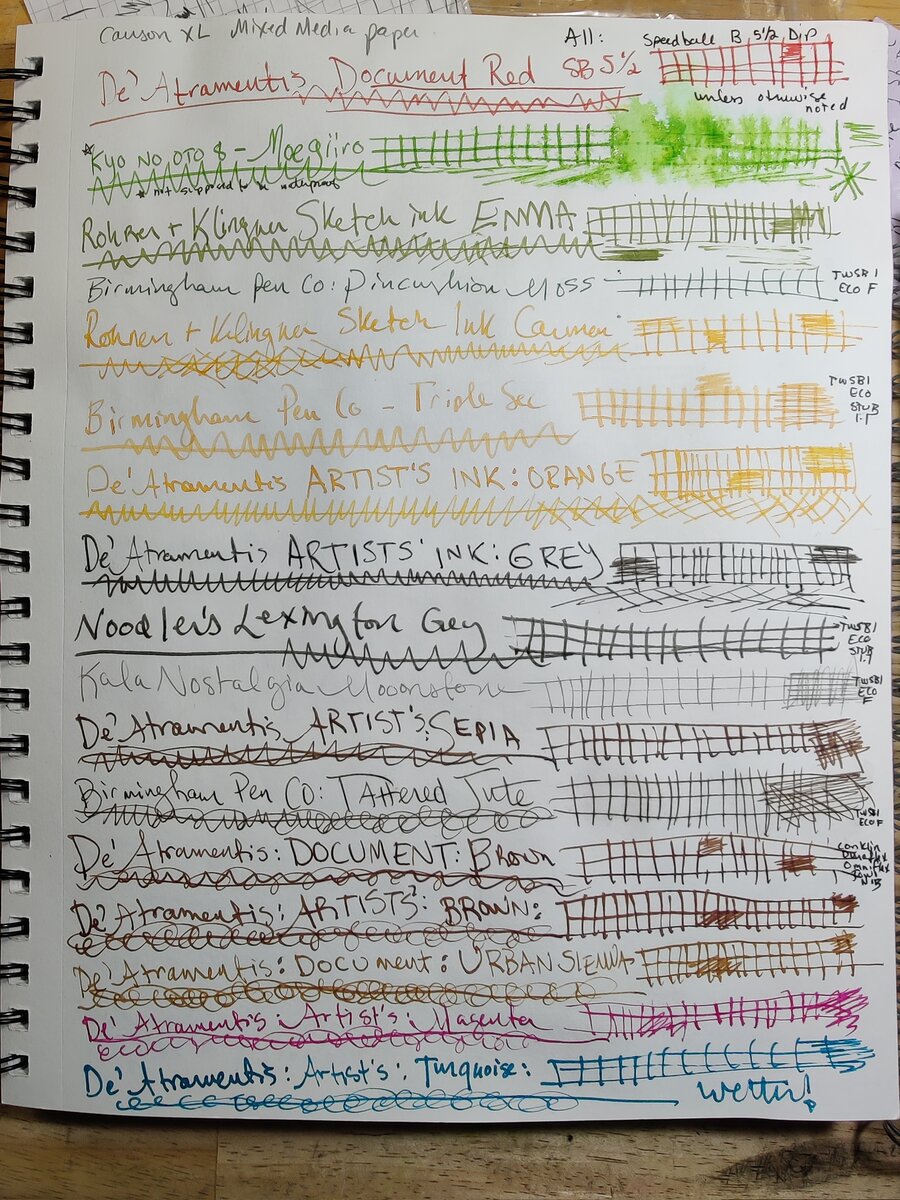 Canson XL Mixed Media paper
All: Speedball B 5 1/2 Dip
unless otherwise noted
De'Atramentis Document Red SB 5 1/2
*Kyo No OTO 8 - Moegiiro
* not supposed to be waterproof
Rohrer + Klingner Sketch ink EMMA
Birmingham Pen Co: Pincushion Moss
TWSBI
ECO F
Rohrer + Klingner Sketch Ink Carmen
Birmingham Pen Co - Triple Sec
TWSBI
ECO
STUB
1.1
De'Atramentis ARTIST'S INK: ORANGE
De'Atramentis ARTISTS' INK: GREY
Noodler's Lexington Grey
TWSBI
ECO
STUB
1.1
Kala Nostalgia Mooonstone
TWSBI
ECO
F
De'Atramentis ARTIST'S: SEPIA
Birmingham Pen Co: TAttered Jute
TWSBI
ECO F
De'Atramentis: DOCUMENT: Brown
Conklin
Duraflex
Omniflex
NIB
De'Atramentis: ARTISTS: BROWN:
De'Atramentis: Document: URBAN SIENNA
De'Atramentis: Artist's: Magenta
De'Atramentis: Artist's: Turquoise:
wetter!